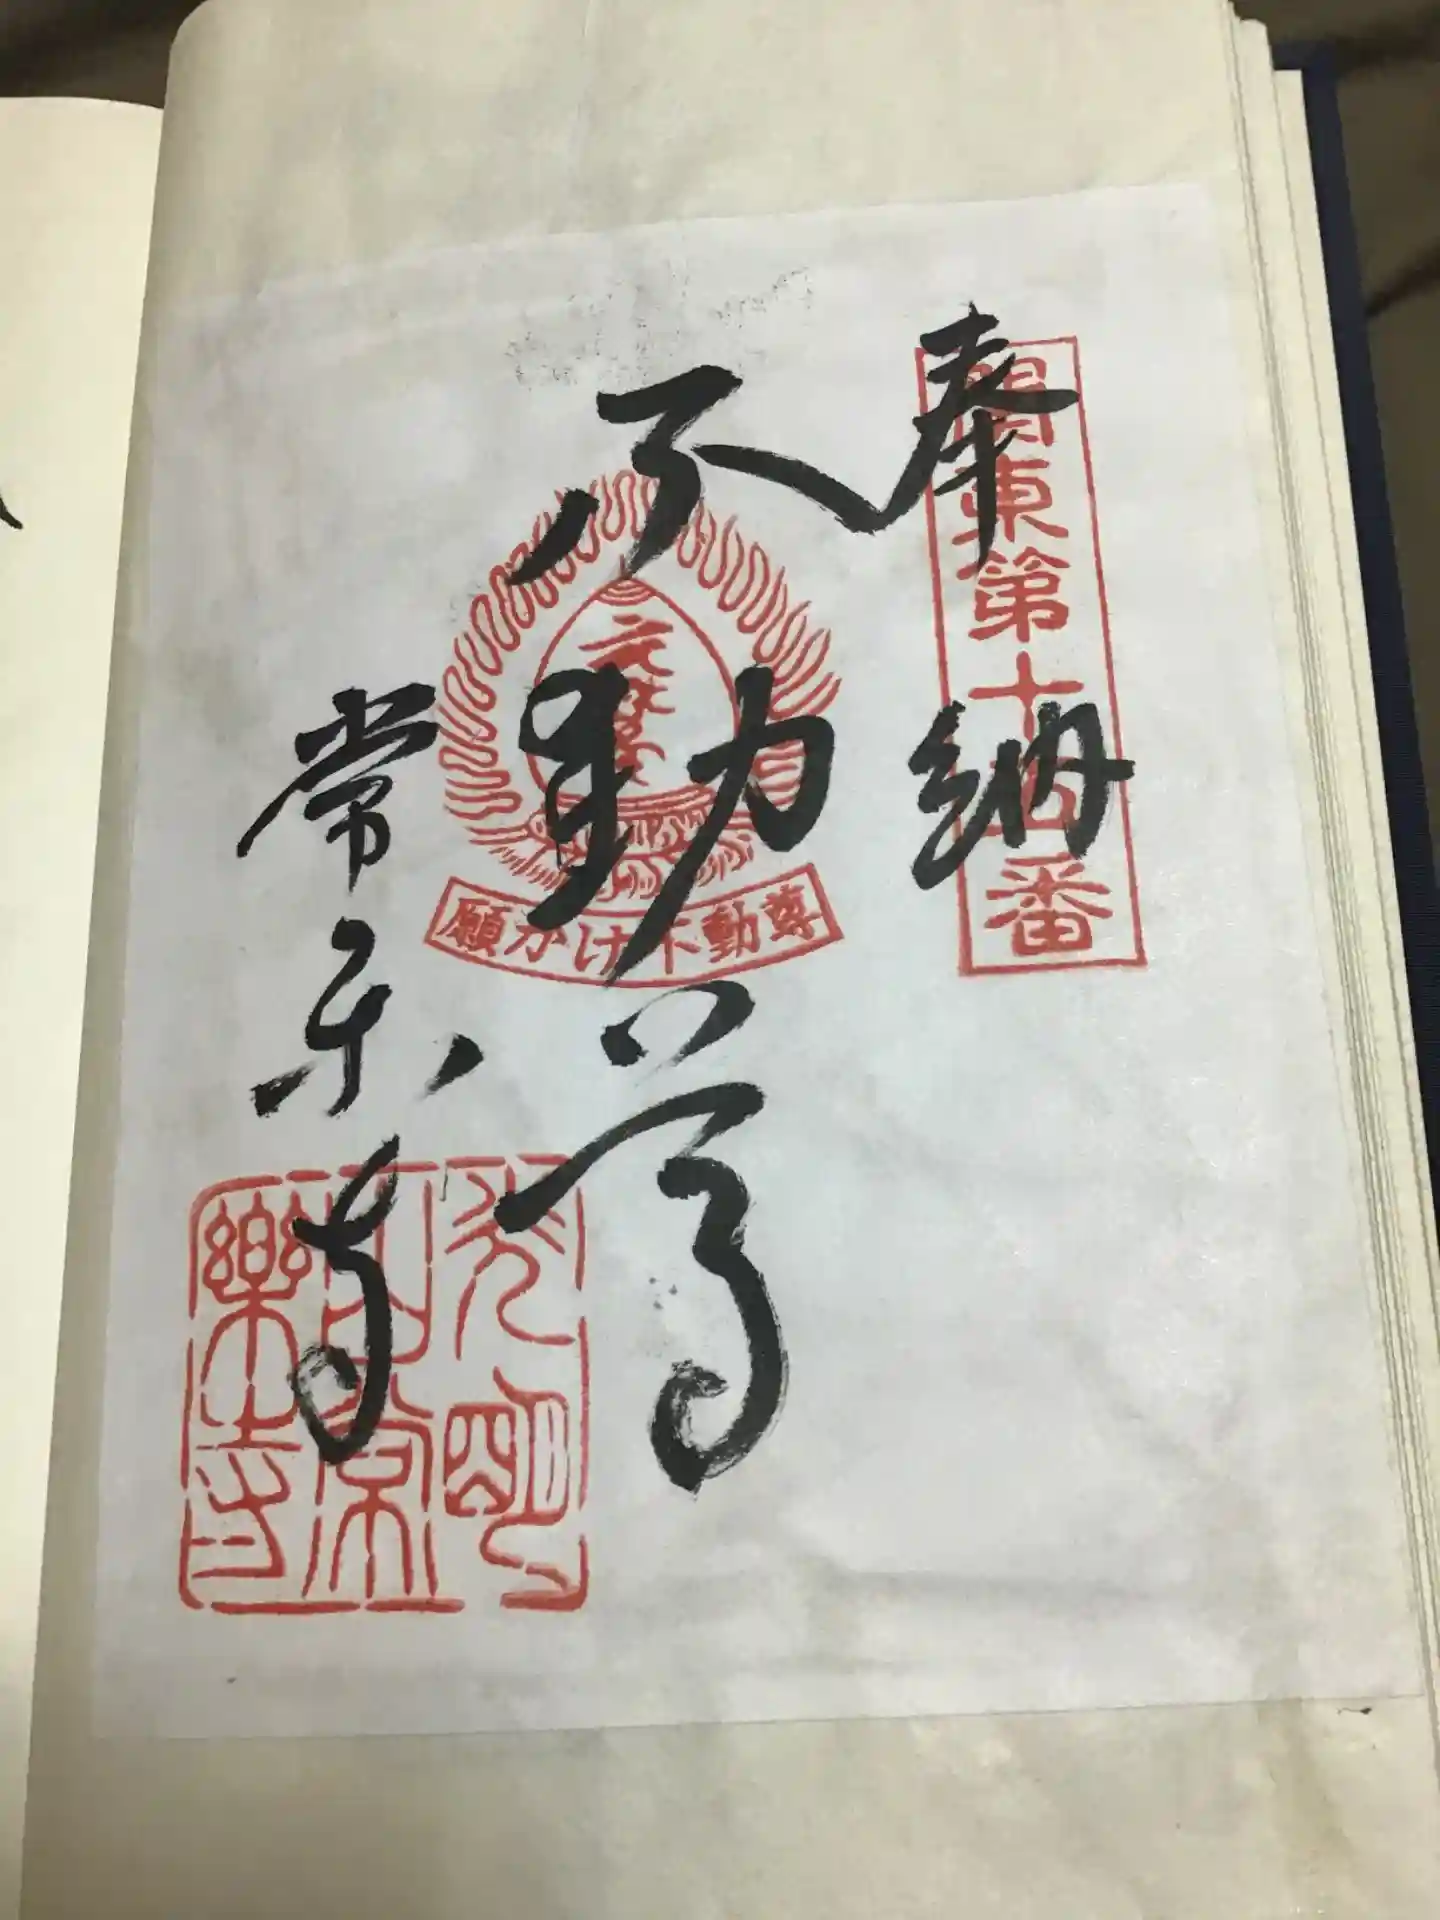 奉納
関東第十四番
不動尊
願かけ不動尊
常楽寺
光明
山常
樂寺